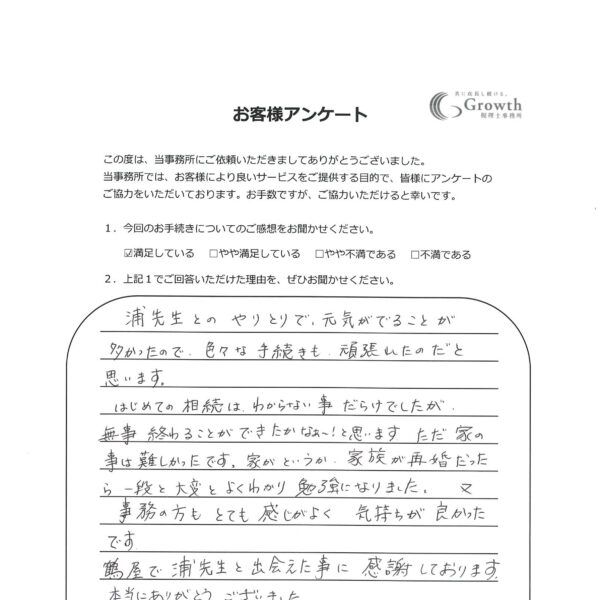 共に成長し続ける。
Growth
税理士事務所
お客様アンケート
この度は、当事務所にご依頼いただきましてありがとうございました。
当事務所では、お客様により良いサービスをご提供する目的で、皆様にアンケートの
ご協力をいただいております。お手数ですが、ご協力いただけると幸いです。
1．今回のお手続きについてのご感想をお聞かせください。
☑満足している　□やや満足している　□やや不満である　□不満である
2．上記１でご回答いただけた理由を、ぜひお聞かせください。
浦先生とのやりとりで、元気がでることが
多かったので、色々な手続きも、頑張れたのだと
思います。
はじめての相続は、わからない事だらけでしたが、
無事終わることができたかなぁ〜!と思います ただ 家の
事は難しかったです。家がというか、家族が再婚だった
ら一段と大変とよくわかり勉強になりました。 又
事務の方も とても 感じがよく 気持ちが良かった
です。
鶴屋で浦先生と出会えた事に 感謝しております。
本当にありがとうございました